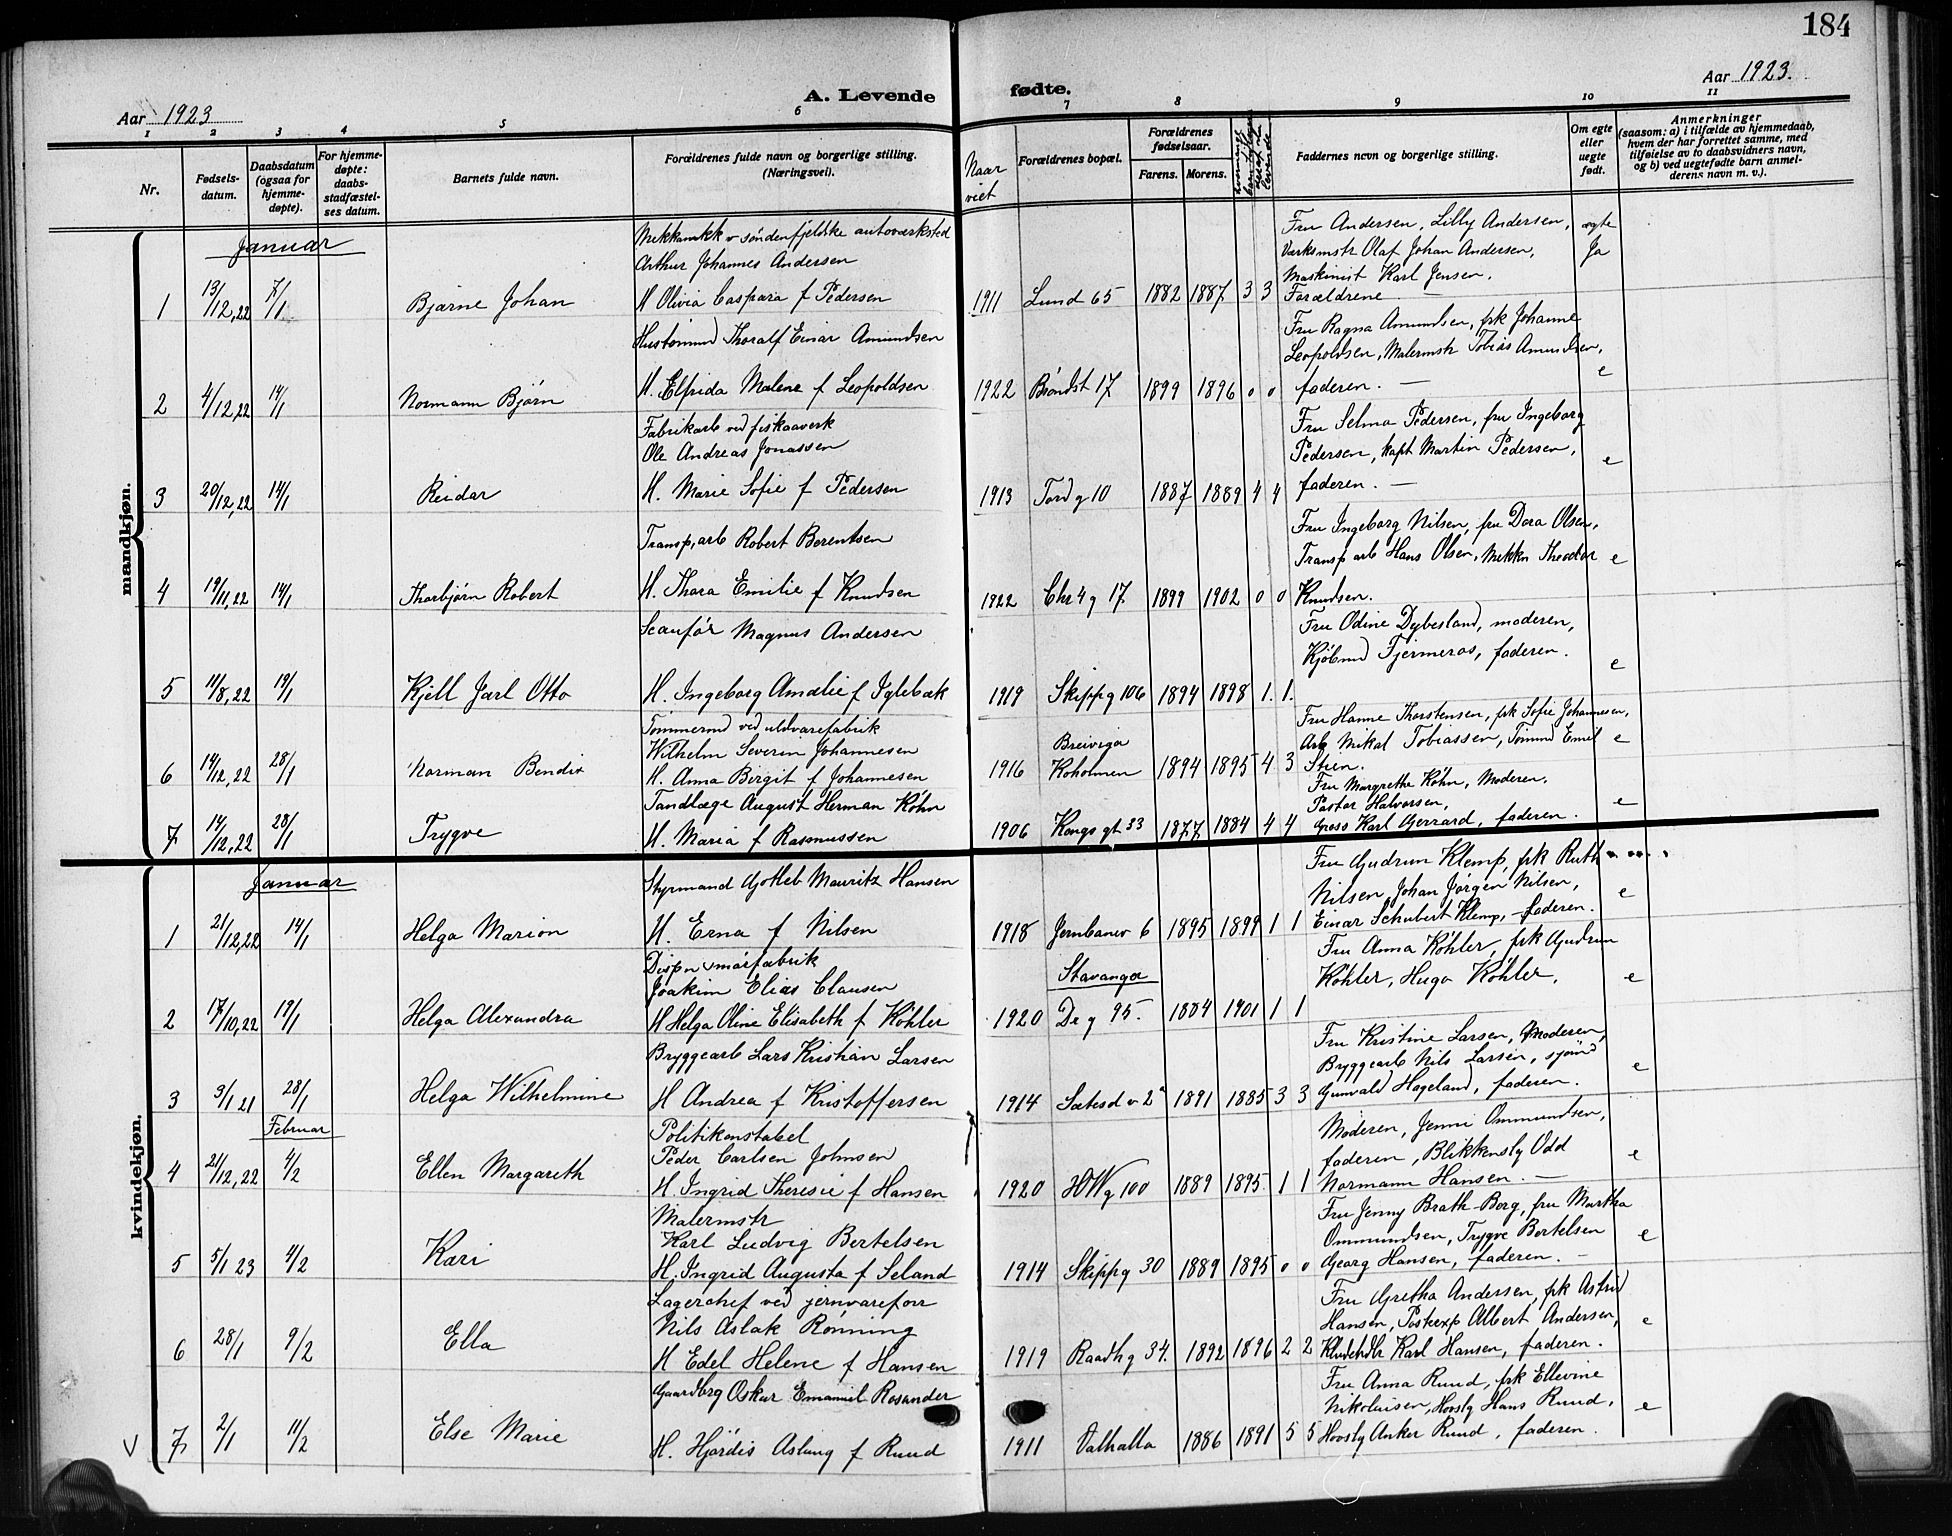 184
Aar 1923
A. Levende
fødte.
Aar 1923.
1 2 3 4 5 6 7 8 9 10 11
Nr.
Fødsels-
datum.
Daabsdatum
(ogsaa for
hjemme-
døpte).
For hjemme-
døpte:
daabs-
stadfæstel-
ses datum.
Barnets fulde navn.
Forældrenes fulde navn og borgerlige stilling.
(Næringsvei).
Naar
viet
Forældrenes bopæl.
Forældrenes
fødselsaar.
Farens. Morens.
Faddernes navn og borgerlige stilling.
Om egte
eller
uegte
født.
Anmerkninger
(saasom: a) i tilfælde av hjemmedaab,
hvem der har forrettet samme, med
tilføielse av to daabsvidners navn,
og b) ved uegtefødte barn anmel-
derens navn m. v.).
mandkjøn.
Januar
Mekkanikk v søndenfjeldske autoverksted
Arthur Johannes Andersen
1 13/12,22 7/1 Bjarne Johan H Olivia Caspara f Pedersen 1911 Lund 65 1882 1887 3 3
Fru Andersen, Lilly Andersen, ægte
Verksmstr Olaf Johan Andersen, Ja
Maskinist Karl Jensen.
Forældrene.
Hustømmd Thoralf Einar Amundsen
2 4/12,22 14/1 Normann Bjørn H. Elfrida Malene f Leopoldsen 1922 Brøndst 17 1899 1896 0 0
Fru Ragna Amundsen, frk Johanne
Leopoldsen, Malermstr Tobias Amundsen,
faderen. — e
Fabrikarb ved fiskaaverk
Ole Andreas Jonassen
3 20/12,22 14/1 Reidar H. Marie Sofie f Pedersen 1913 Tord g 10 1887 1889 4 4
Fru Selma Pedersen, fru Ingeborg
Pedersen, kapt Martin Pedersen,
faderen. — e
Transp.arb Robert Berentsen
4 19/11,22 14/1 Thorbjørn Robert H. Thora Emilie f Knudsen 1922 Chr 4 g 17 1899 1902 0 0
Fru Ingeborg Nilsen, fru Dora Olsen,
Transp arb Hans Olsen, Mekkn Theodor e
Knudsen.
Magnus Andersen
5 11/8,22 19/1 Kjell Jarl Otto H. Ingeborg Amalie f Iglebæk 1919 Skippg 106 1894 1898 1. 1.
Fru Odine Dybesland, moderen,
Kjøbmd Fjermeros, faderen. e
Tømmermd ved uldvarefabrik
Wilhelm Severin Johannesen
6 14/12,22 28/1 Norman Bendix H. Anna Birgit f Johannesen 1916 Breiviga
Koholmen 1894 1895 4 3
Fru Hanne Thorstensen, frk Sofie Johannesen,
Arb Mikal Tobiassen, Tømmd Emil e
Stien.
Tandlæge August Herman Köhn
7 14/12,22 28/1 Trygve H. Maria f Rasmussen 1906 Kongs gt 33 1877 1884 4 4
Fru Margrethe Köhn, Moderen,
Pastor Halvorsen, e
Gross Karl Gerrard, faderen.
kvindekjøn.
Januar
Styrmand Gotleb Mauritz Hansen
1 21/12,22 14/1 Helga Marion H. Erna f Nilsen 1918 Jernbanev 6 1895 1899 1 1
Fru Gudrun Klemp, frk Ruth
Nilsen, Johan Jørgen Nilsen, e
Einar Schubert Klemp, faderen.
Dispn smørfabrik
Joakim Elias Clausen
2 17/10,22 19/1 Helga Alexandra H Helga Oline Elisabeth f Köhler 1920 Stavanger
Dr g 95. 1884 1901 1 1
Fru Anna Köhler, frk Gudrun
Köhler, Hugo Köhler, e
Bryggearb Lars Kristian Larsen
3 3/1 21 28/1 Helga Wilhelmine H Andrea f Kristoffersen 1914 Sætesd v 2a 1891 1885 3 3
Fru Kristine Larsen, Moderen,
Bryggearb Nils Larsen, sjømd e
Gunvald Hageland, faderen.
Februar
Politikonstabel
Peder Carlsen Johnsen
4 21/12,22 4/2 Ellen Margareth H. Ingrid Theresie f Hansen 1920 HWg 100 1889 1895 1 1
Moderen, Jenni Ommundsen,
faderen, Blikkensly Odd e
Normann Hansen. —
Malermstr
Karl Ludvig Bertelsen
5 5/1 23 4/2 Kari H. Ingrid Augusta f Seland 1914 Skippg 30 1889 1895 0 0
Fru Jenny Brath-Borg, fru Martha
Ommundsen, Trygve Bertelsen e
Georg Hansen, faderen. —
Lagerchef ved jernvareforr
Nils Aslak Rønning
6 28/1 9/2 Ella H Edel Helene f Hansen 1919 Raadhg 34. 1892 1896 2 2
Fru Gretha Andersen, frk Astrid
Hansen, Postexp Albert Andersen, e
Karl Hansen, faderen.
Gaardbrg Oskar Emanuel Rosander
V 7 2/1 11/2 Else Marie H. Hjørdis Aslaug f Ruud 1911 Valhalla 1886 1891 5 5
Fru Anna Ruud, frk Ellevine
Nikolaisen, Hovsly Hans Ruud, e
Hovsly Anker Ruud, faderen.